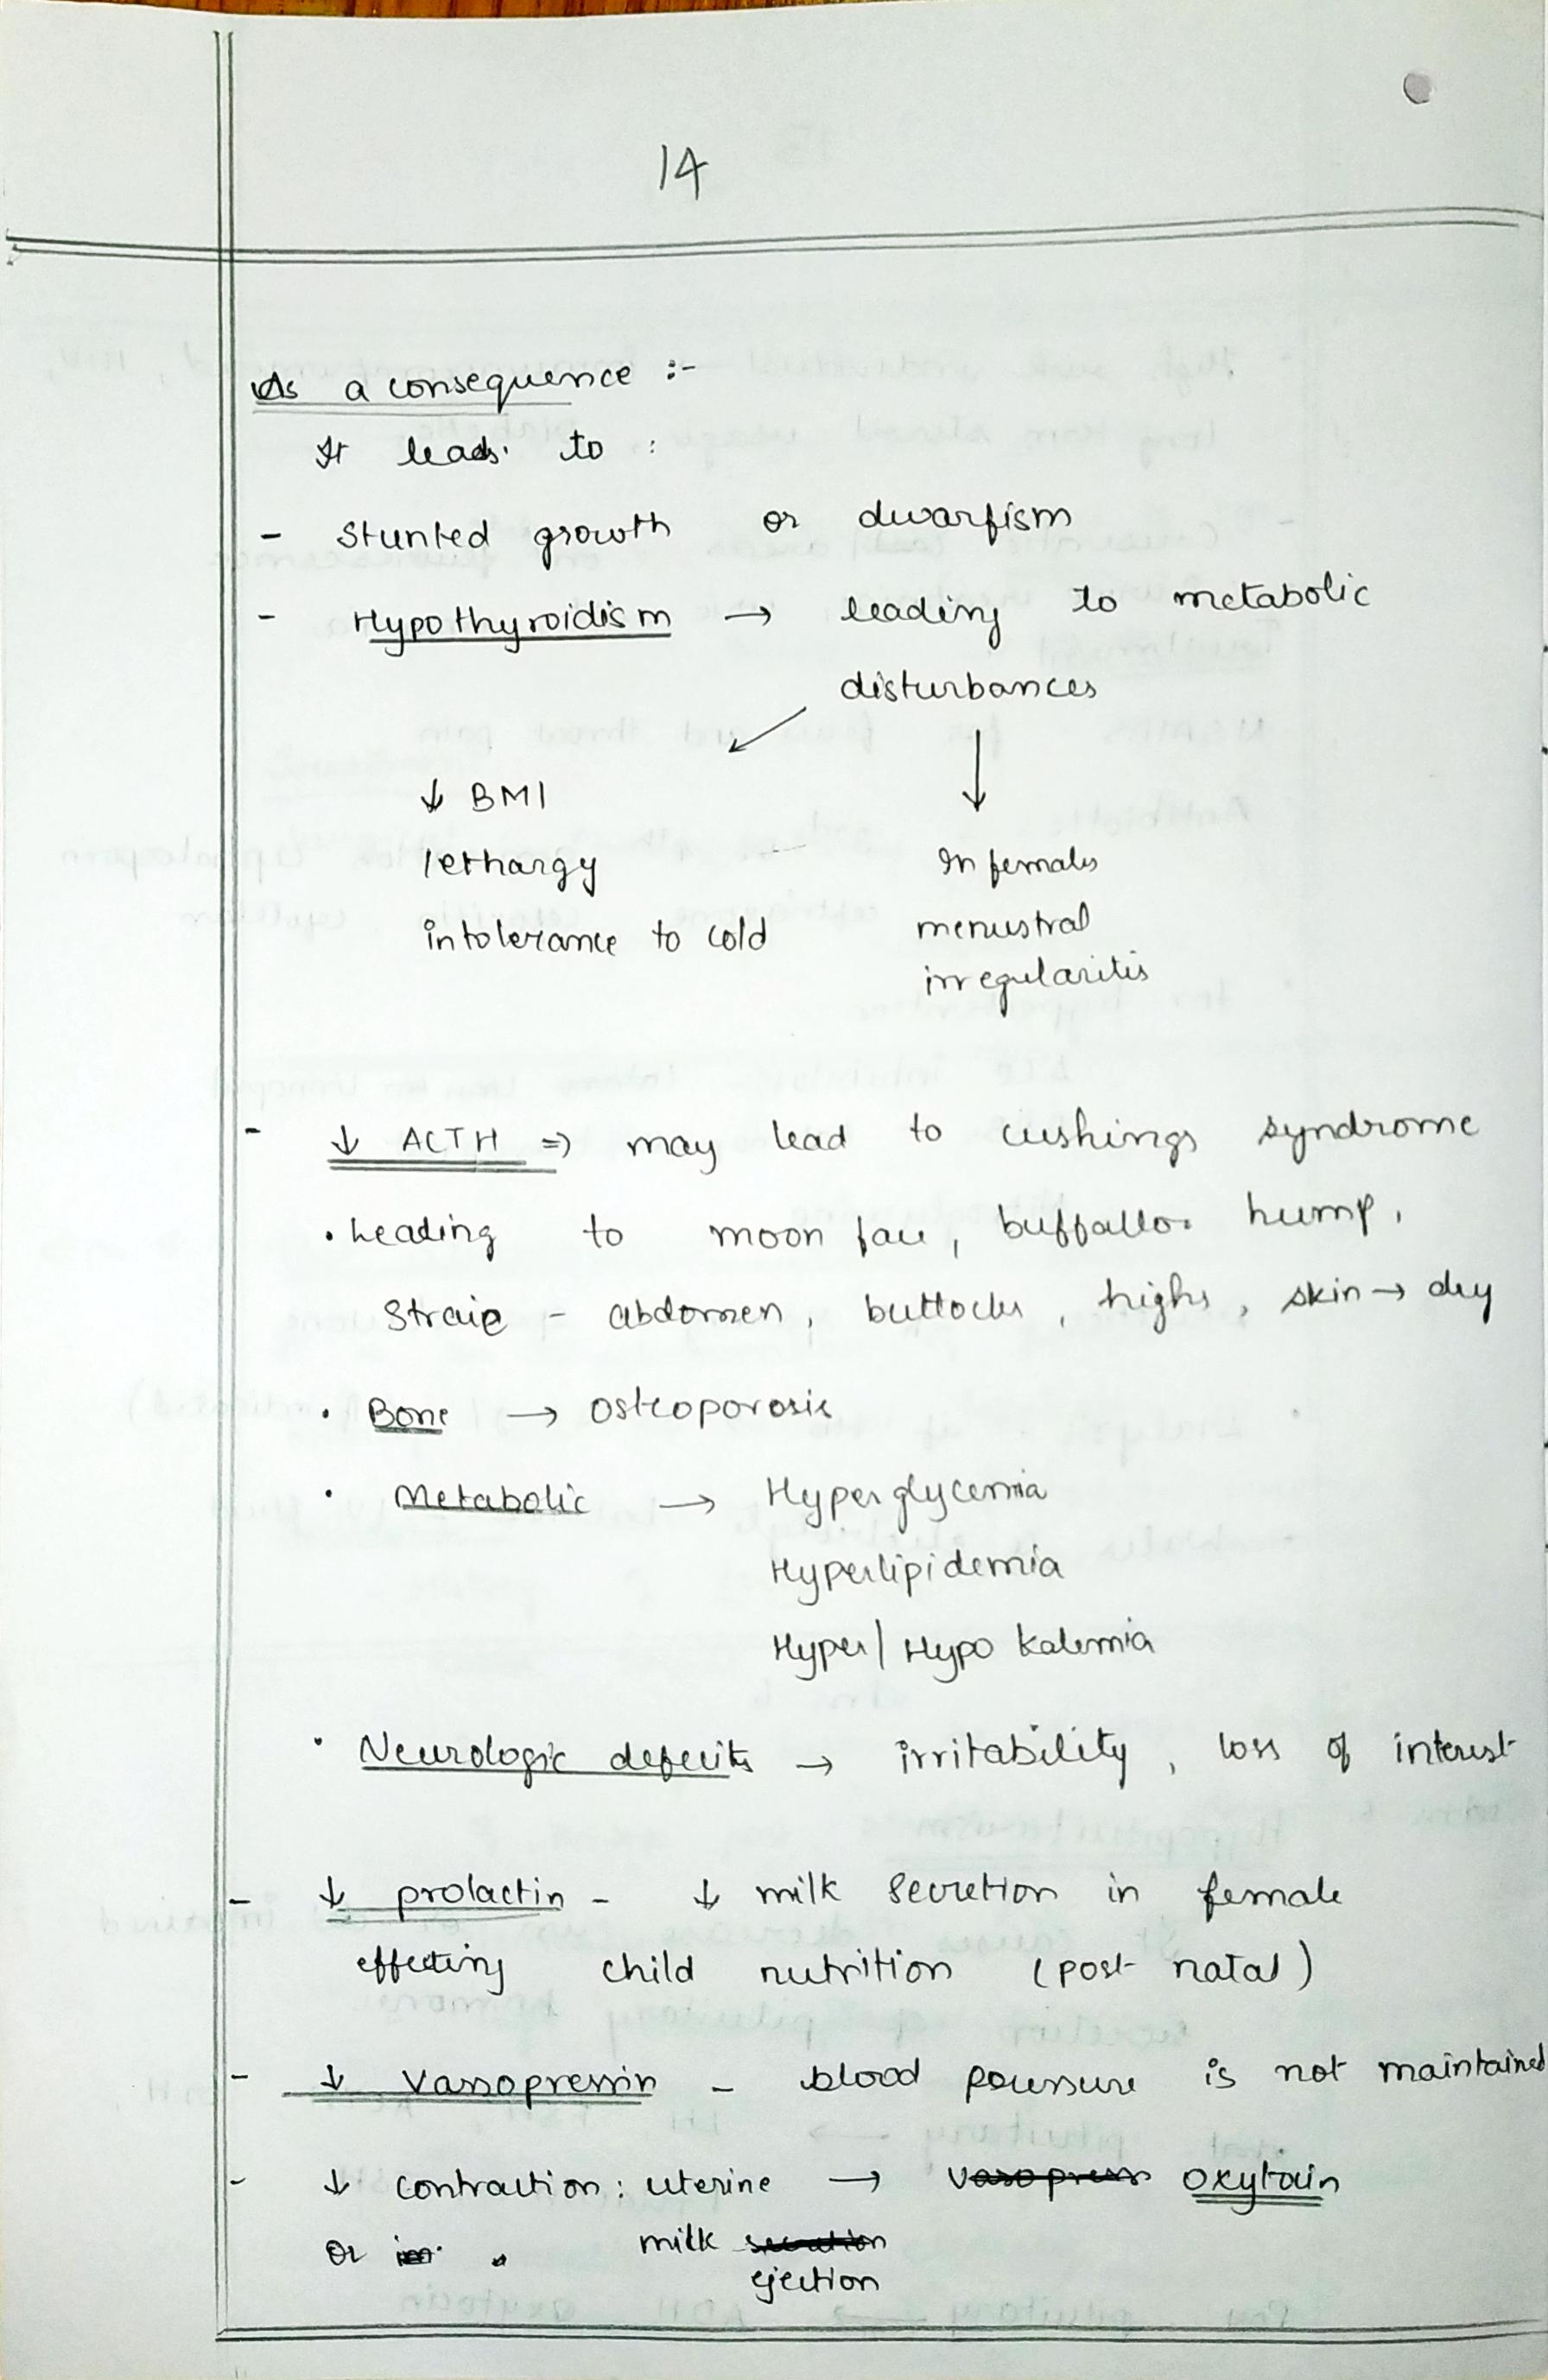 14
As a consequence :-
It leads to :
- Stunted growth or dwarfism
- Hypothyroidism → leading to metabolic
disturbances
↓ BMI
lethargy
intolerance to cold
In females
menustral
irregularitis
- ↓ ACTH ⇒ may lead to cushings syndrome
• Leading to moon face, buffallo hump,
Straie - abdomen, buttocks, thighs, skin → dry
• Bone → Osteoporosis
• Metabolic → Hyperglycemia
Hyperlipidemia
Hyper/Hypo kalemia
• Neurologic deficits → irritability, loss of interest
- ↓ prolactin - ↓ milk secretion in female
effecting child nutrition (post natal)
- ↓ Vassopressin - blood pressure is not maintained
- ↓ contraction : uterine → vasopress oxytocin
or milk secretion
ejection